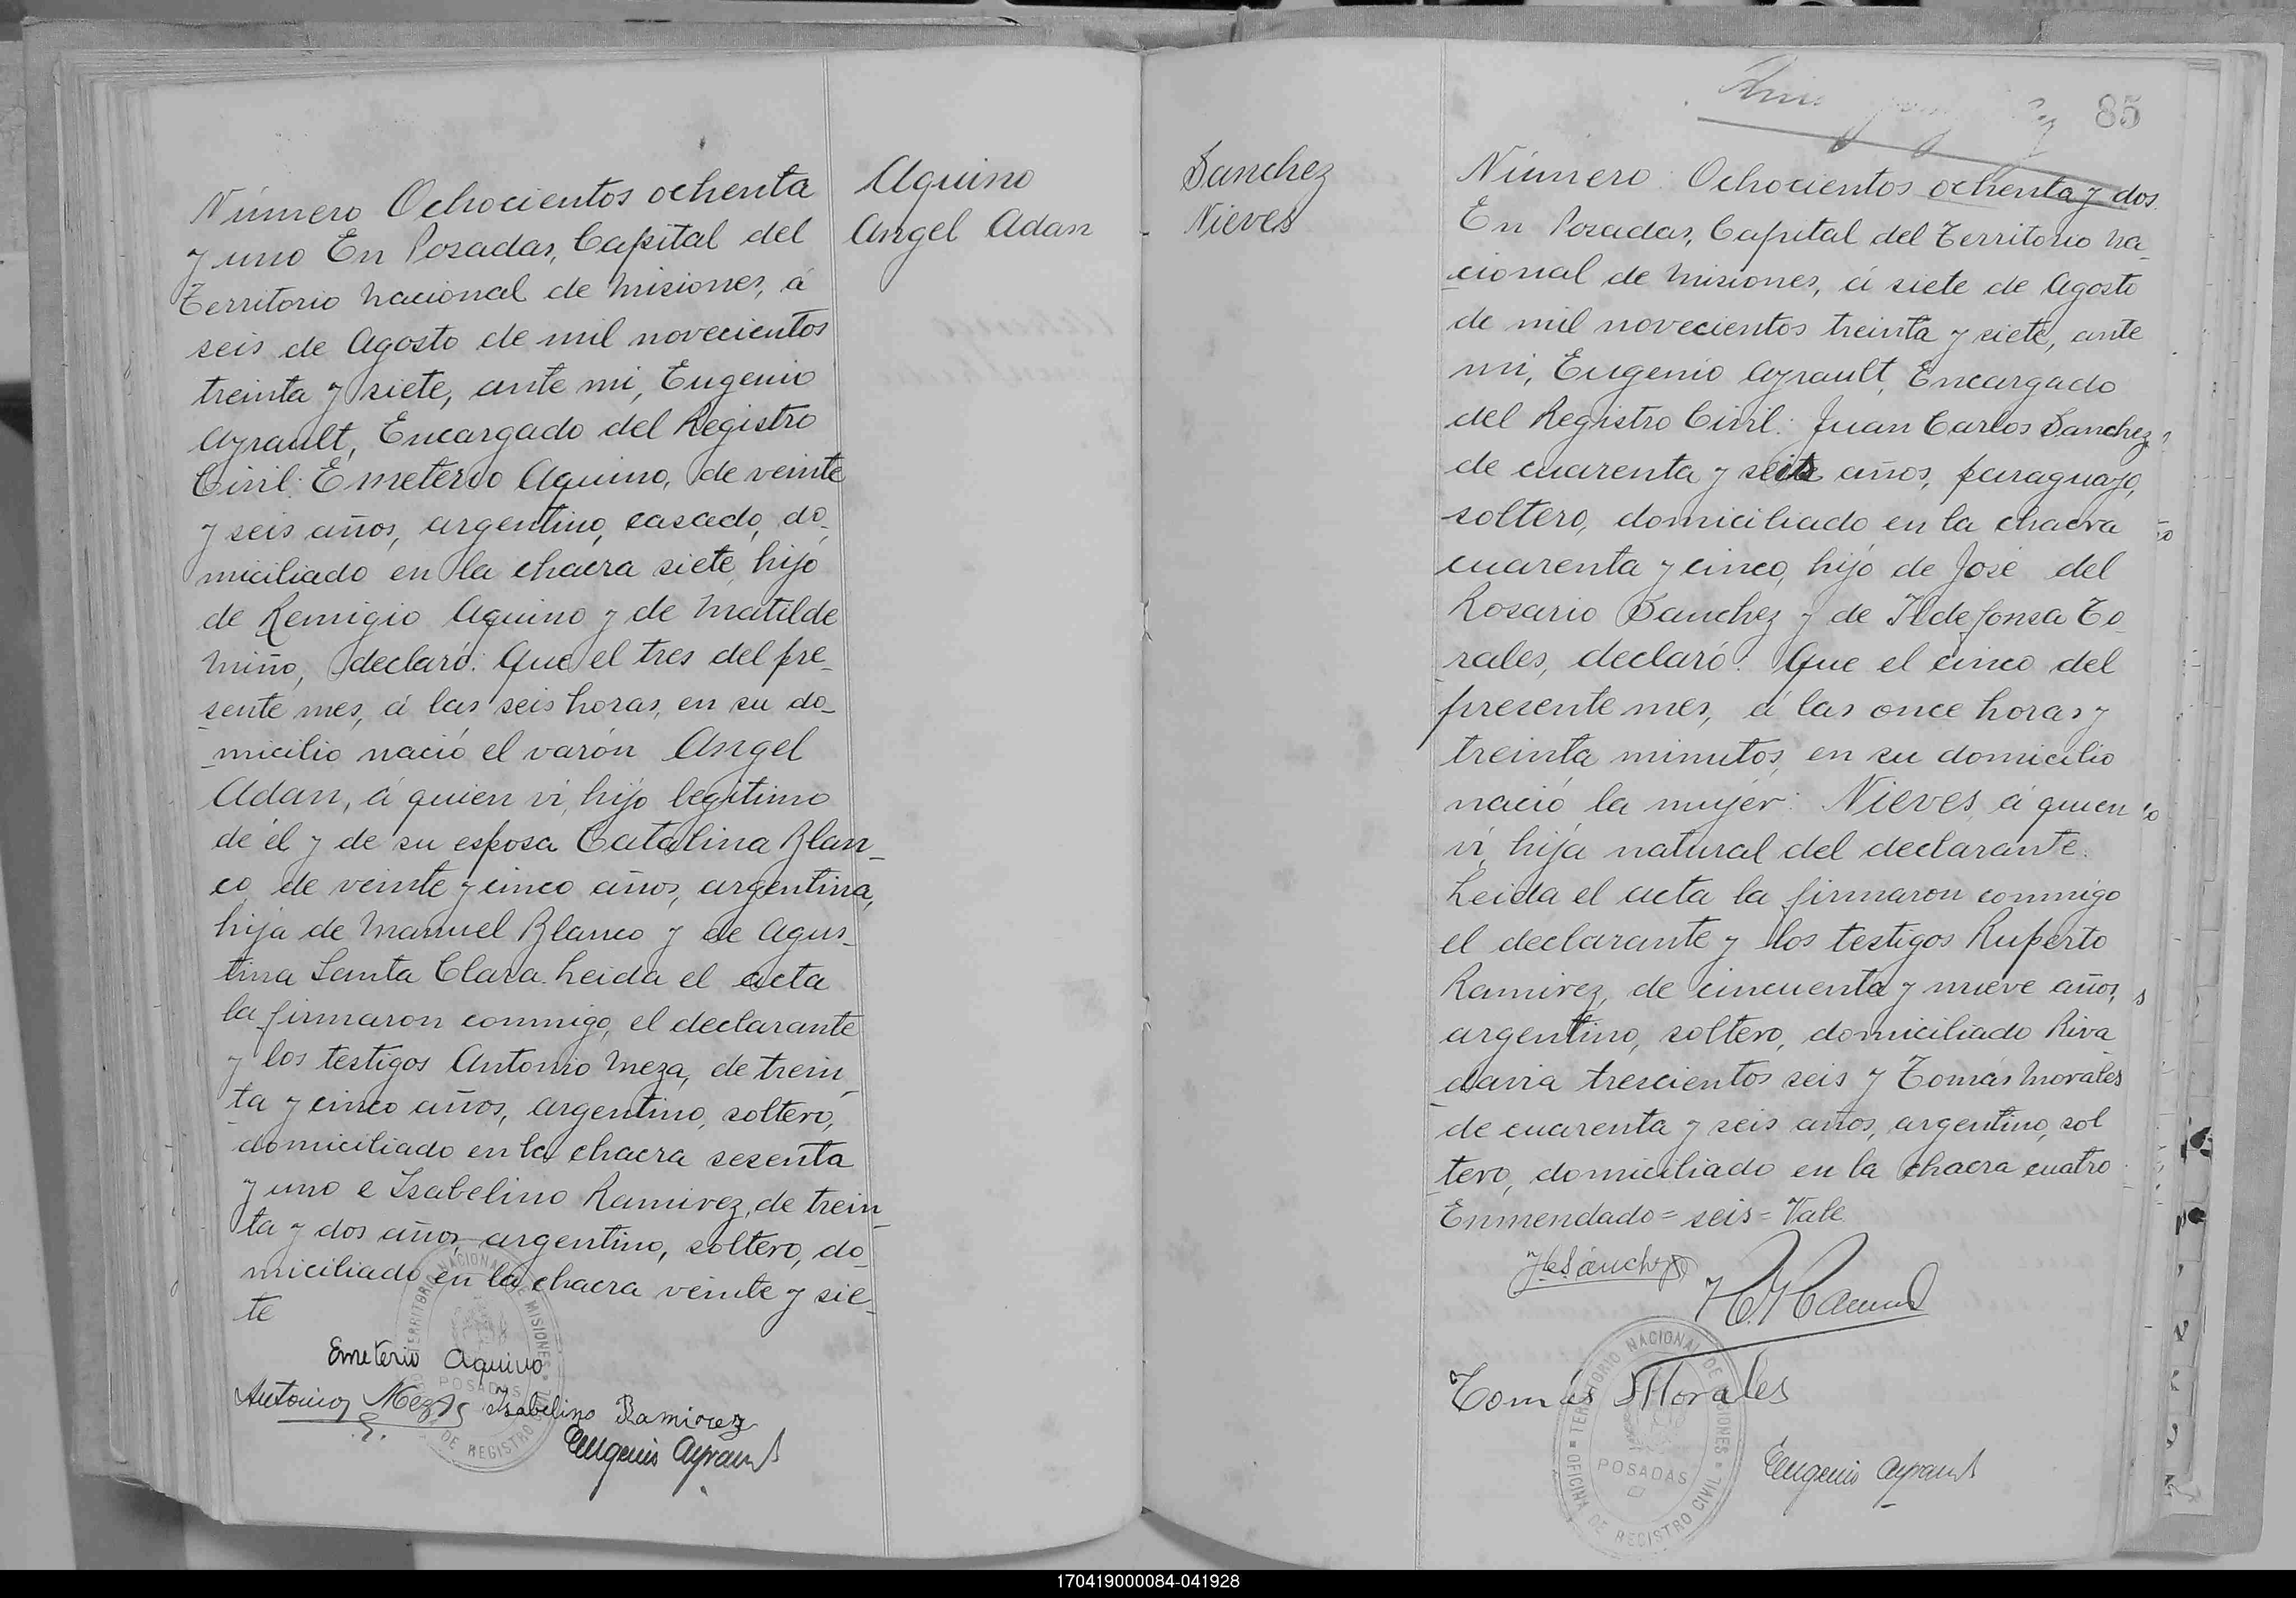 Aquino
Angel Adan
Número Ochocientos ochenta
y uno En Posadas, Capital del
Territorio Nacional de Misiones, á
seis de Agosto de mil novecientos
treinta y siete, ante mi, Eugenio
Ayrault, Encargado del Registro
Civil: Emeterio Aquino, de veinte
y seis años, argentino, casado, do_
miciliado en la chacra siete, hijo
de Remigio Aquino y de Matilde
Miño, declaró: Que el tres del pre_
sente mes, á las seis horas, en su do_
_micilio nació el varón Angel
Adan, á quien vi, hijo legitimo
de él y de su esposa Catalina Blan_
co, de veinte y cinco años, argentina,
hija de Manuel Blanco y de Agus_
tina Santa Clara. Leida el acta
la firmaron conmigo, el declarante
y los testigos Antonio Meza, de trein_
ta y cinco años, argentino, soltero,
domiciliado en la chacra sesenta
y uno e Isabelino Ramirez, de trein_
ta y dos años, argentino, soltero, do_
miciliado en la chacra veinte y sie_
te
Emeterio Aquino
Antonio Meza Isabelino Ramirez
Eugenio Ayrault
TERRITORIO NACIONAL DE MISIONES
POSADAS
DE REGISTRO
85
Sanchez
Nieves
Número: Ochocientos ochenta y dos.
En Posadas, Capital del Territorio Na_
cional de Misiones, á siete de Agosto
de mil novecientos treinta y siete, ante
mi, Eugenio Ayrault, Encargado
del Registro Civil: Juan Carlos Sanchez
de cuarenta y seis años, paraguayo,
soltero, domiciliado en la chacra
cuarenta y cinco, hijo de José del
Rosario Sanchez y de Ildefonsa To_
rales, declaró: Que el cinco del
presente mes, á las once horas y
treinta minutos, en su domicilio
nació la mujer: Nieves, á quien
vi, hija natural del declarante.
Leida el acta la firmaron conmigo
el declarante y los testigos Ruperto
Ramirez, de cincuenta y nueve años,
argentino, soltero, domiciliado Riva_
davia trescientos seis y Tomás Morales
de cuarenta y seis años, argentino, sol
tero, domiciliado en la chacra cuatro
Enmendado = seis = Vale.
J C Sánchez
Tomás Morales
Eugenio Ayrault
OFICINA DE REGISTRO CIVIL TERRITORIO NACIONAL DE MISIONES
POSADAS
170419000084-041928